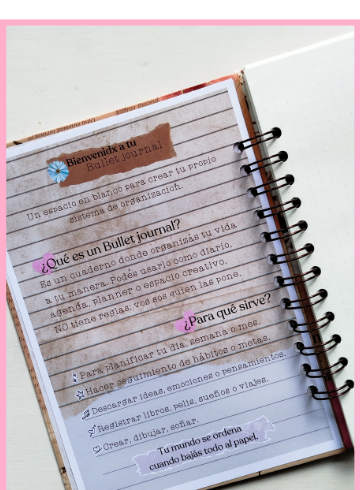 Bienvenidx a tu
Bullet journal
Un espacio en blanco para crear tu propio
sistema de organización.
¿Qué es un Bullet journal?
Es un cuaderno donde organizás tu vida
a tu manera. Podés usarlo como diario,
agenda, planner o espacio creativo.
NO tiene reglas, vos sos quien las pone.
¿Para qué sirve?
Para planificar tu día, semana o mes.
Hacer seguimiento de hábitos o metas.
Descargar ideas, emociones o pensamientos.
Registrar libros, pelis, sueños o viajes.
Crear, dibujar, soñar.
Tu mundo se ordena
cuando bajás todo al papel.